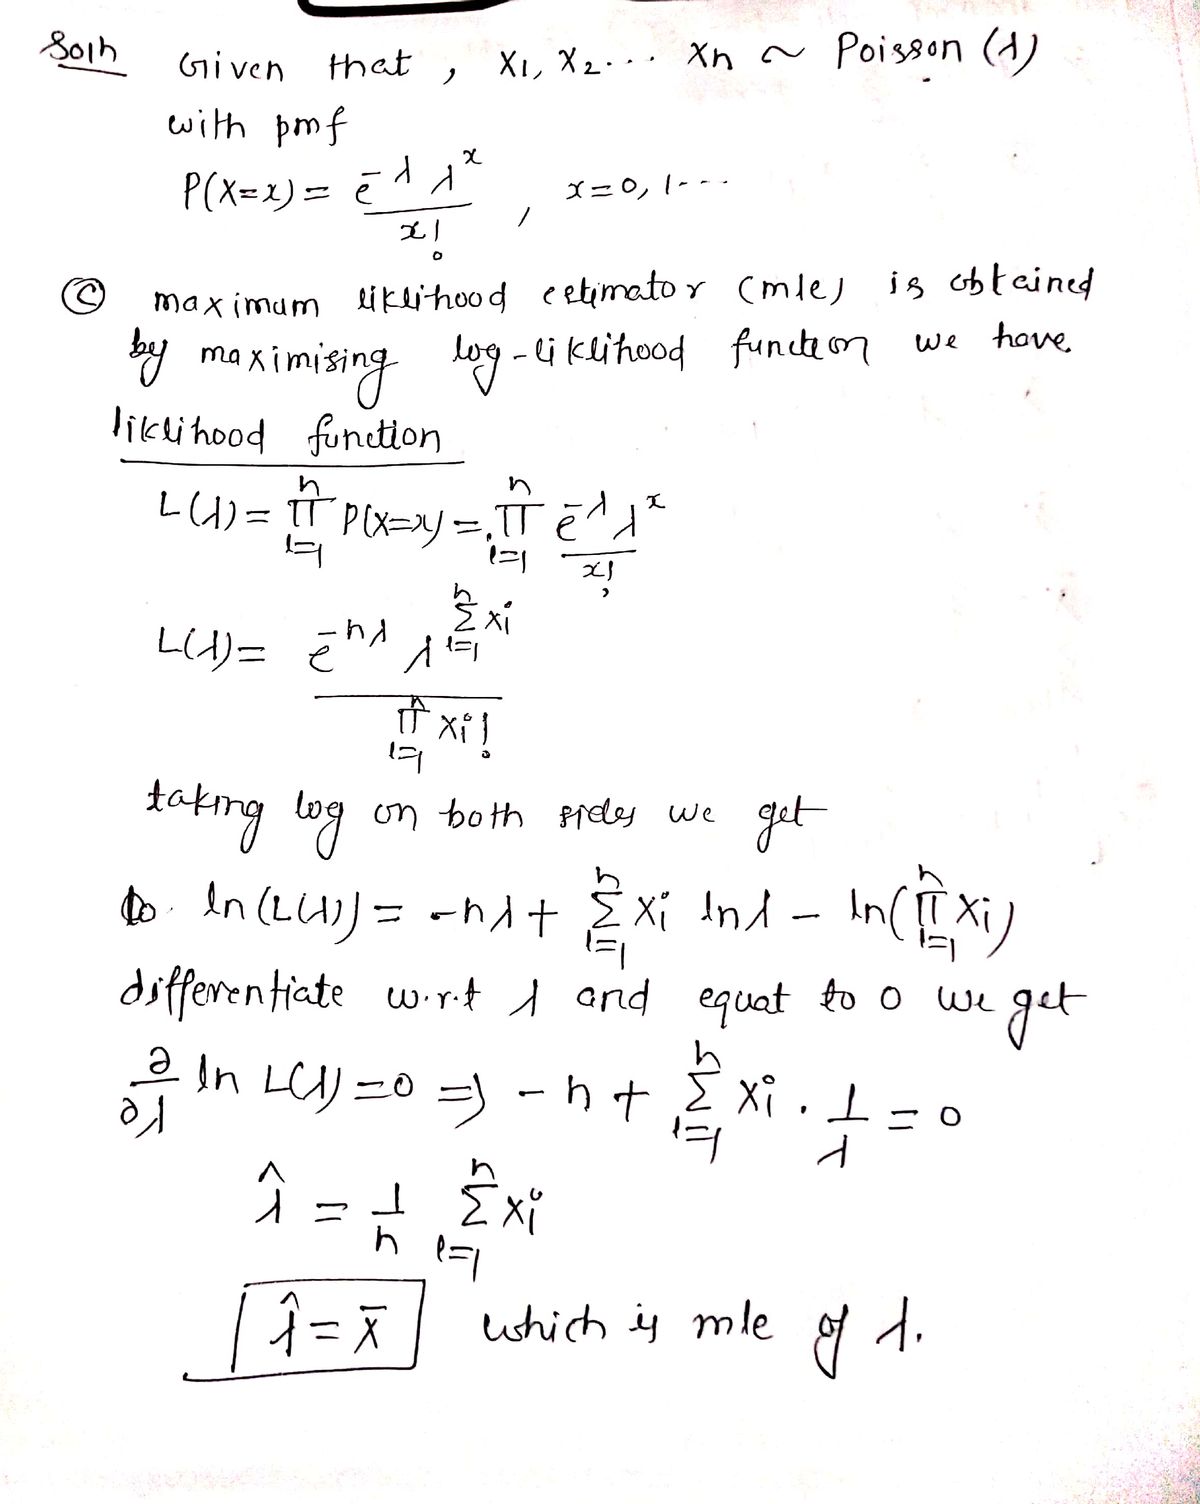 Soln Given that , X1, X2... Xn ~ Poisson (λ)
with pmf
P(X=x) = e^-λ λ^x / x! , x=0, 1---
(c) maximum liklihood estimator (mle) is obtained
by maximising log-liklihood function we have
liklihood function
L(λ) = ∏_{i=1}^{n} P(X=x) = ∏_{i=1}^{n} e^-λ λ^x / x!
L(λ) = e^-nλ λ^{∑_{i=1}^{n} xi} / ∏_{i=1}^{n} xi!
taking log on both sides we get
ln(L(λ)) = -nλ + ∑_{i=1}^{n} xi lnλ - ln(∏_{i=1}^{n} xi)
differentiate w.r.t λ and equat to 0 we get
∂/∂λ ln L(λ) = 0 => -n + ∑_{i=1}^{n} xi . 1/λ = 0
λ̂ = 1/n ∑_{i=1}^{n} xi
λ̂ = x̄ which is mle of λ.